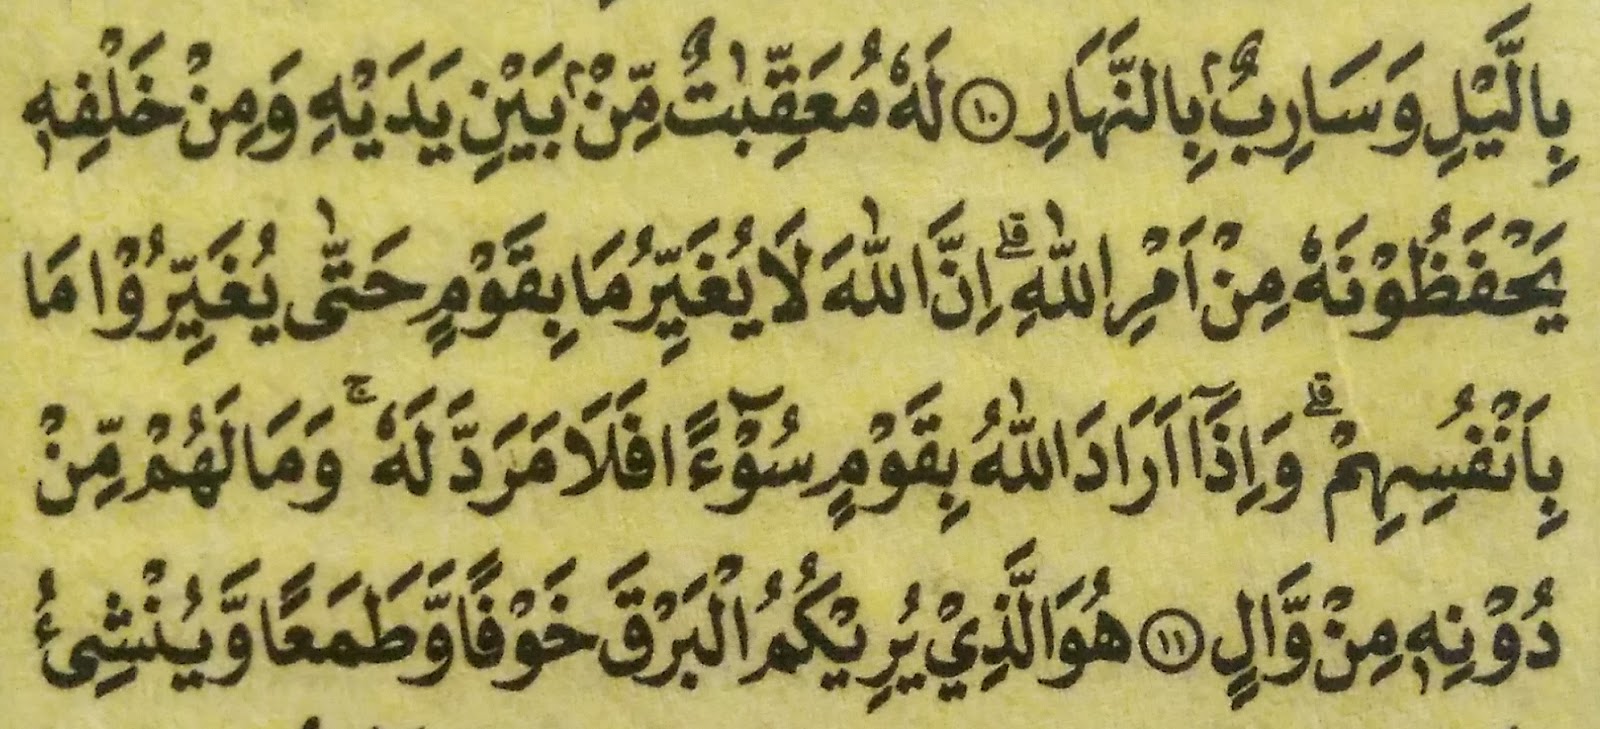 بِالَّيْلِ وَسَارِبٌۢ بِالنَّهَارِ ١٠ لَهٗ مُعَقِّبٰتٌ مِّنْۢ بَيْنِ يَدَيْهِ وَمِنْ خَلْفِهٖ
يَحْفَظُوْنَهٗ مِنْ اَمْرِ اللّٰهِ ۗ اِنَّ اللّٰهَ لَا يُغَيِّرُ مَا بِقَوْمٍ حَتّٰى يُغَيِّرُوْا مَا
بِاَنْفُسِهِمْ ۗ وَاِذَآ اَرَادَ اللّٰهُ بِقَوْمٍ سُوْۤءًا فَلَا مَرَدَّ لَهٗ ۚ وَمَا لَهُمْ مِّنْ
دُوْنِهٖ مِنْ وَّالٍ ١١ هُوَ الَّذِيْ يُرِيْكُمُ الْبَرْقَ خَوْفًا وَّطَمَعًا وَّيُنْشِئُ